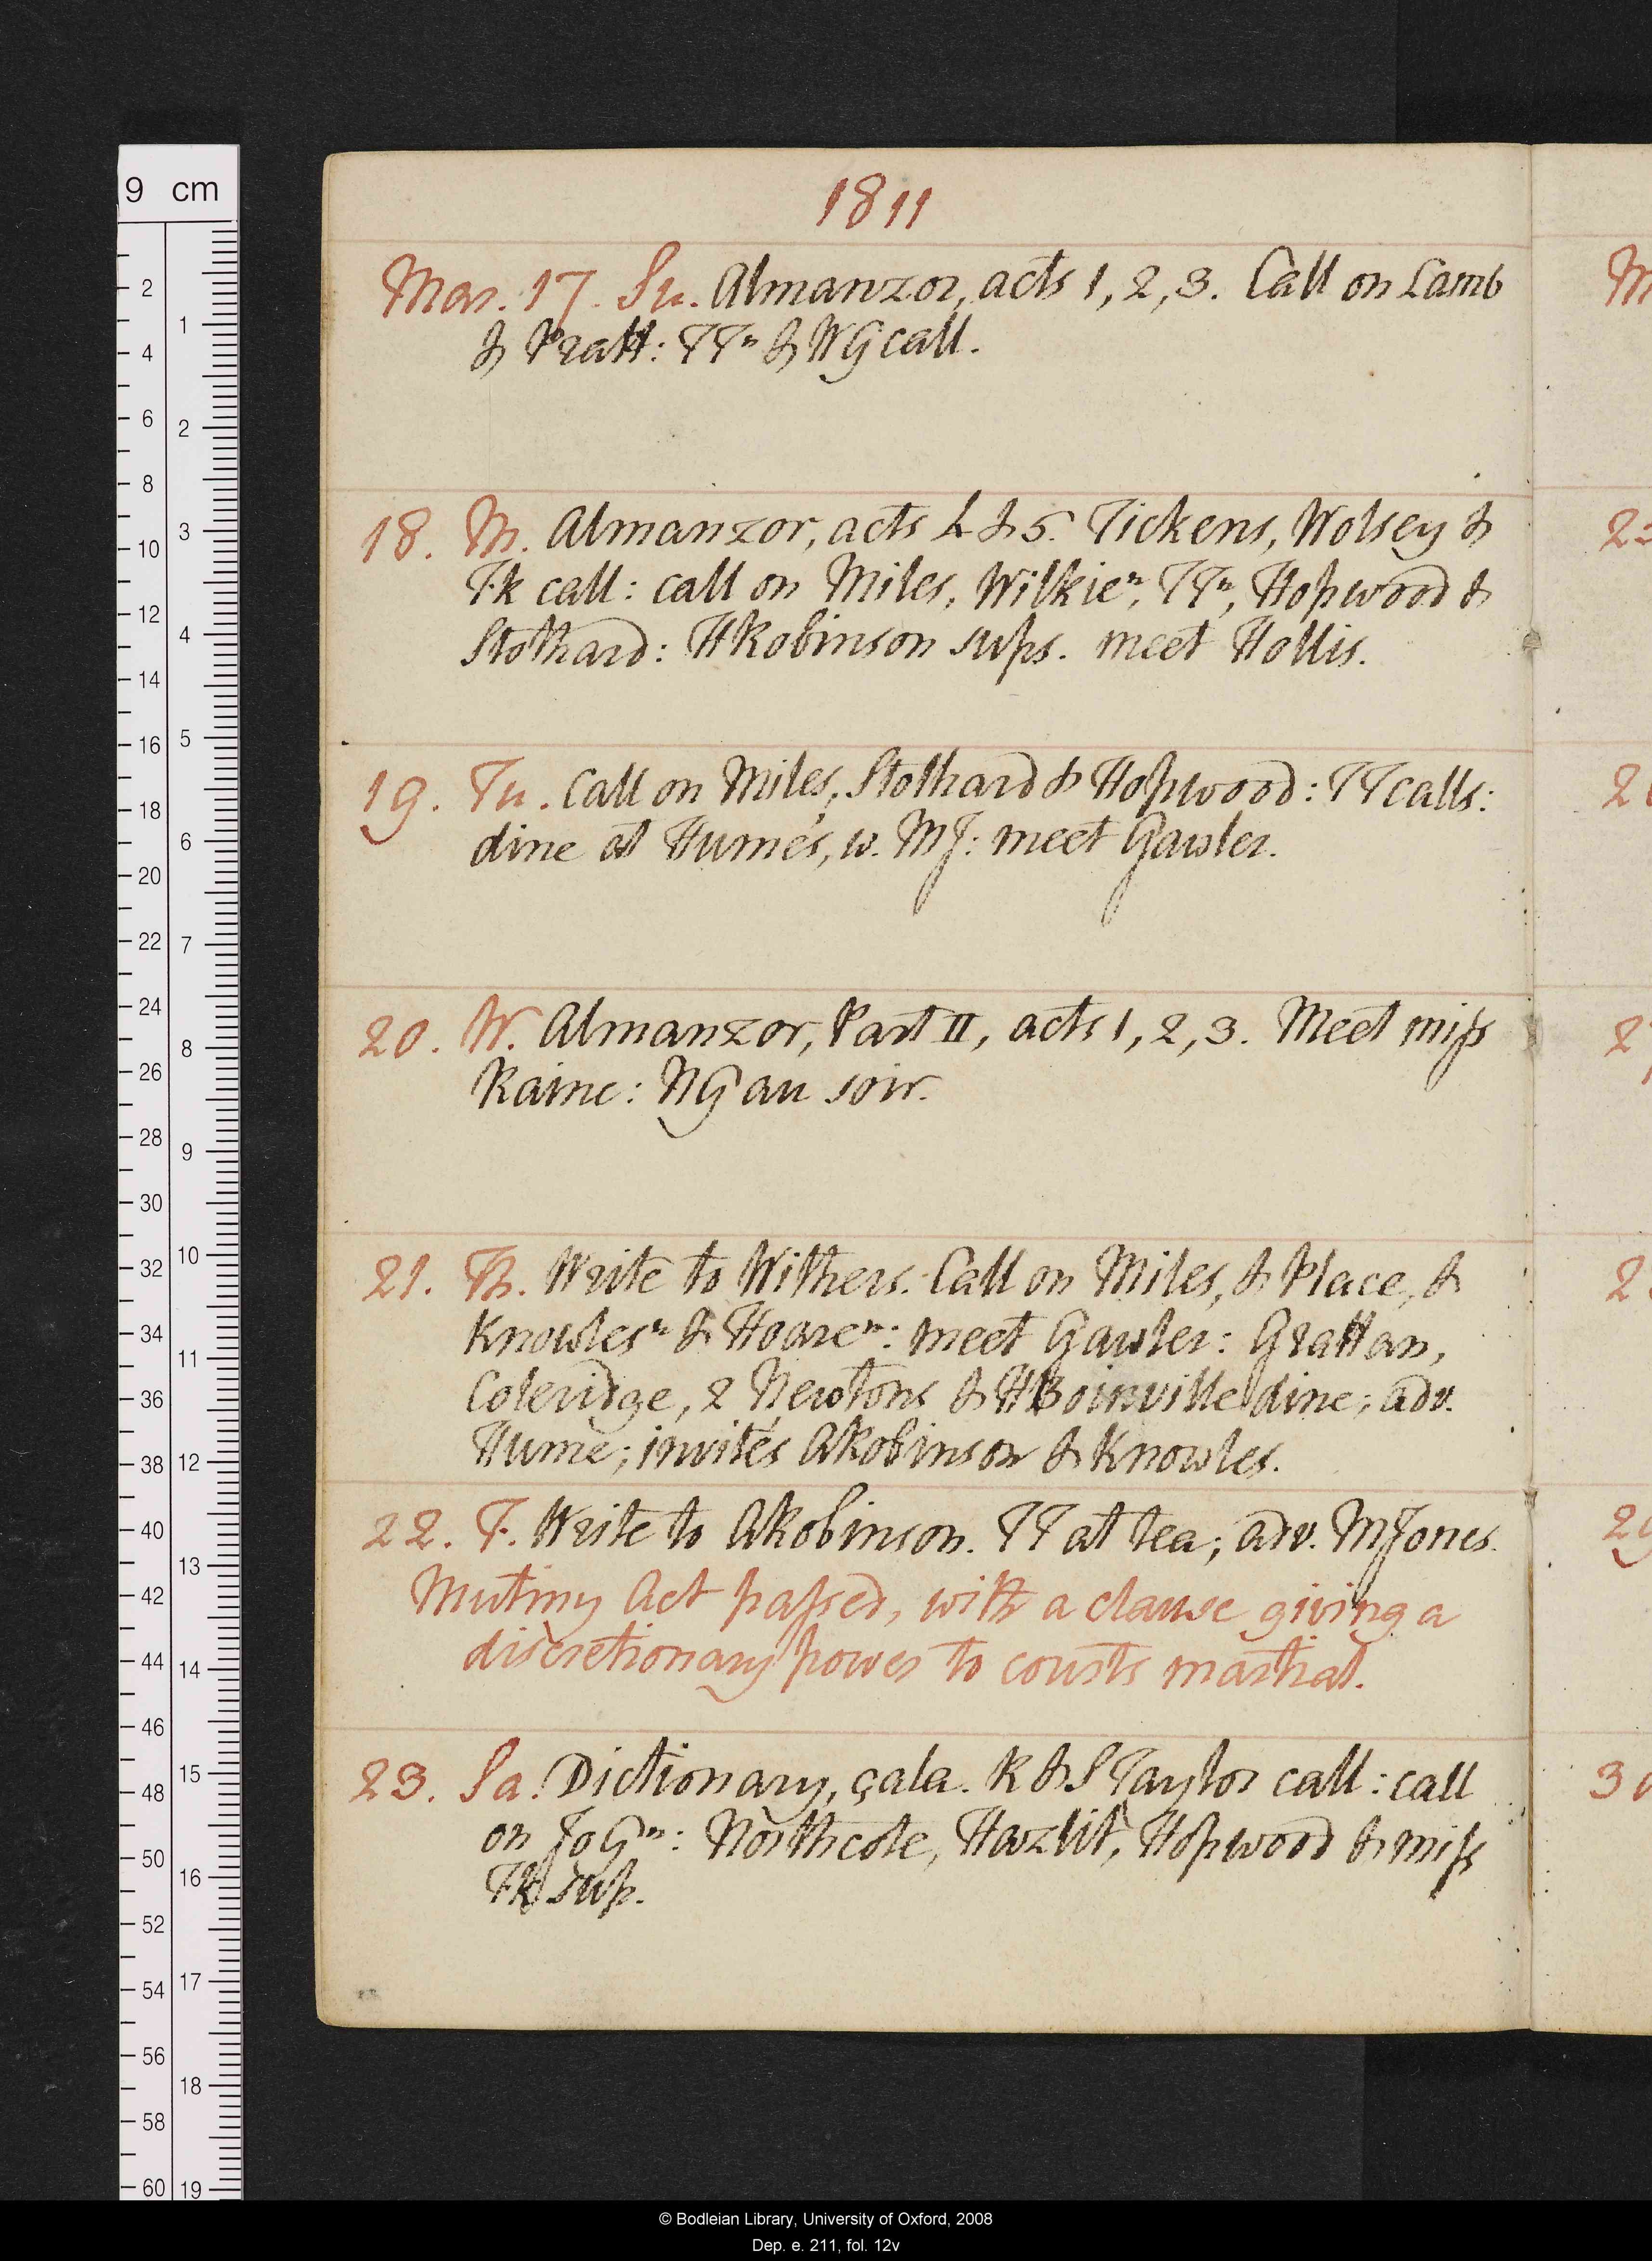 1811
Mar. 17. Su. Almanzor, acts 1, 2, 3. Call on Lamb
& Pratt: TTn & WG call.
18. M. Almanzor, acts 4 & 5. Tickens, Wolsey &
Fk call: call on Miles, Wilkien, TTn, Hopwood &
Stothard: HRobinson sups. meet Hollis.
19. Tu. Call on Miles, Stothard & Hopwood: TT calls:
dine at Hume's, w. MJ: meet Gawler.
20. W. Almanzor, Part II, acts 1, 2, 3. Meet miss
Raine: NG au soir.
21. Th. Write to Withers. Call on Miles, & Place, &
Knowlesn & Hoaren: meet Gawler: Grattan,
Coleridge, 2 Newtons & HBoinville dine; adv.
Hume; invités ARobinson & Knowles.
22. F. Write to ARobinson. TT at tea; adv. MJones.
Mutiny Act passed, with a clause giving a
discretionary power to courts martial.
23. Sa. Dictionary, çala. R & S Taylor call: call
on JoGn: Northcote, Hazlit, Hopwood & miss
Fk sup.
9 cm
2 4 6 8 10 12 14 16 18 20 22 24 26 28 30 32 34 36 38 40 42 44 46 48 50 52 54 56 58 60
1 2 3 4 5 6 7 8 9 10 11 12 13 14 15 16 17 18 19
© Bodleian Library, University of Oxford, 2008
Dep. e. 211, fol. 12v